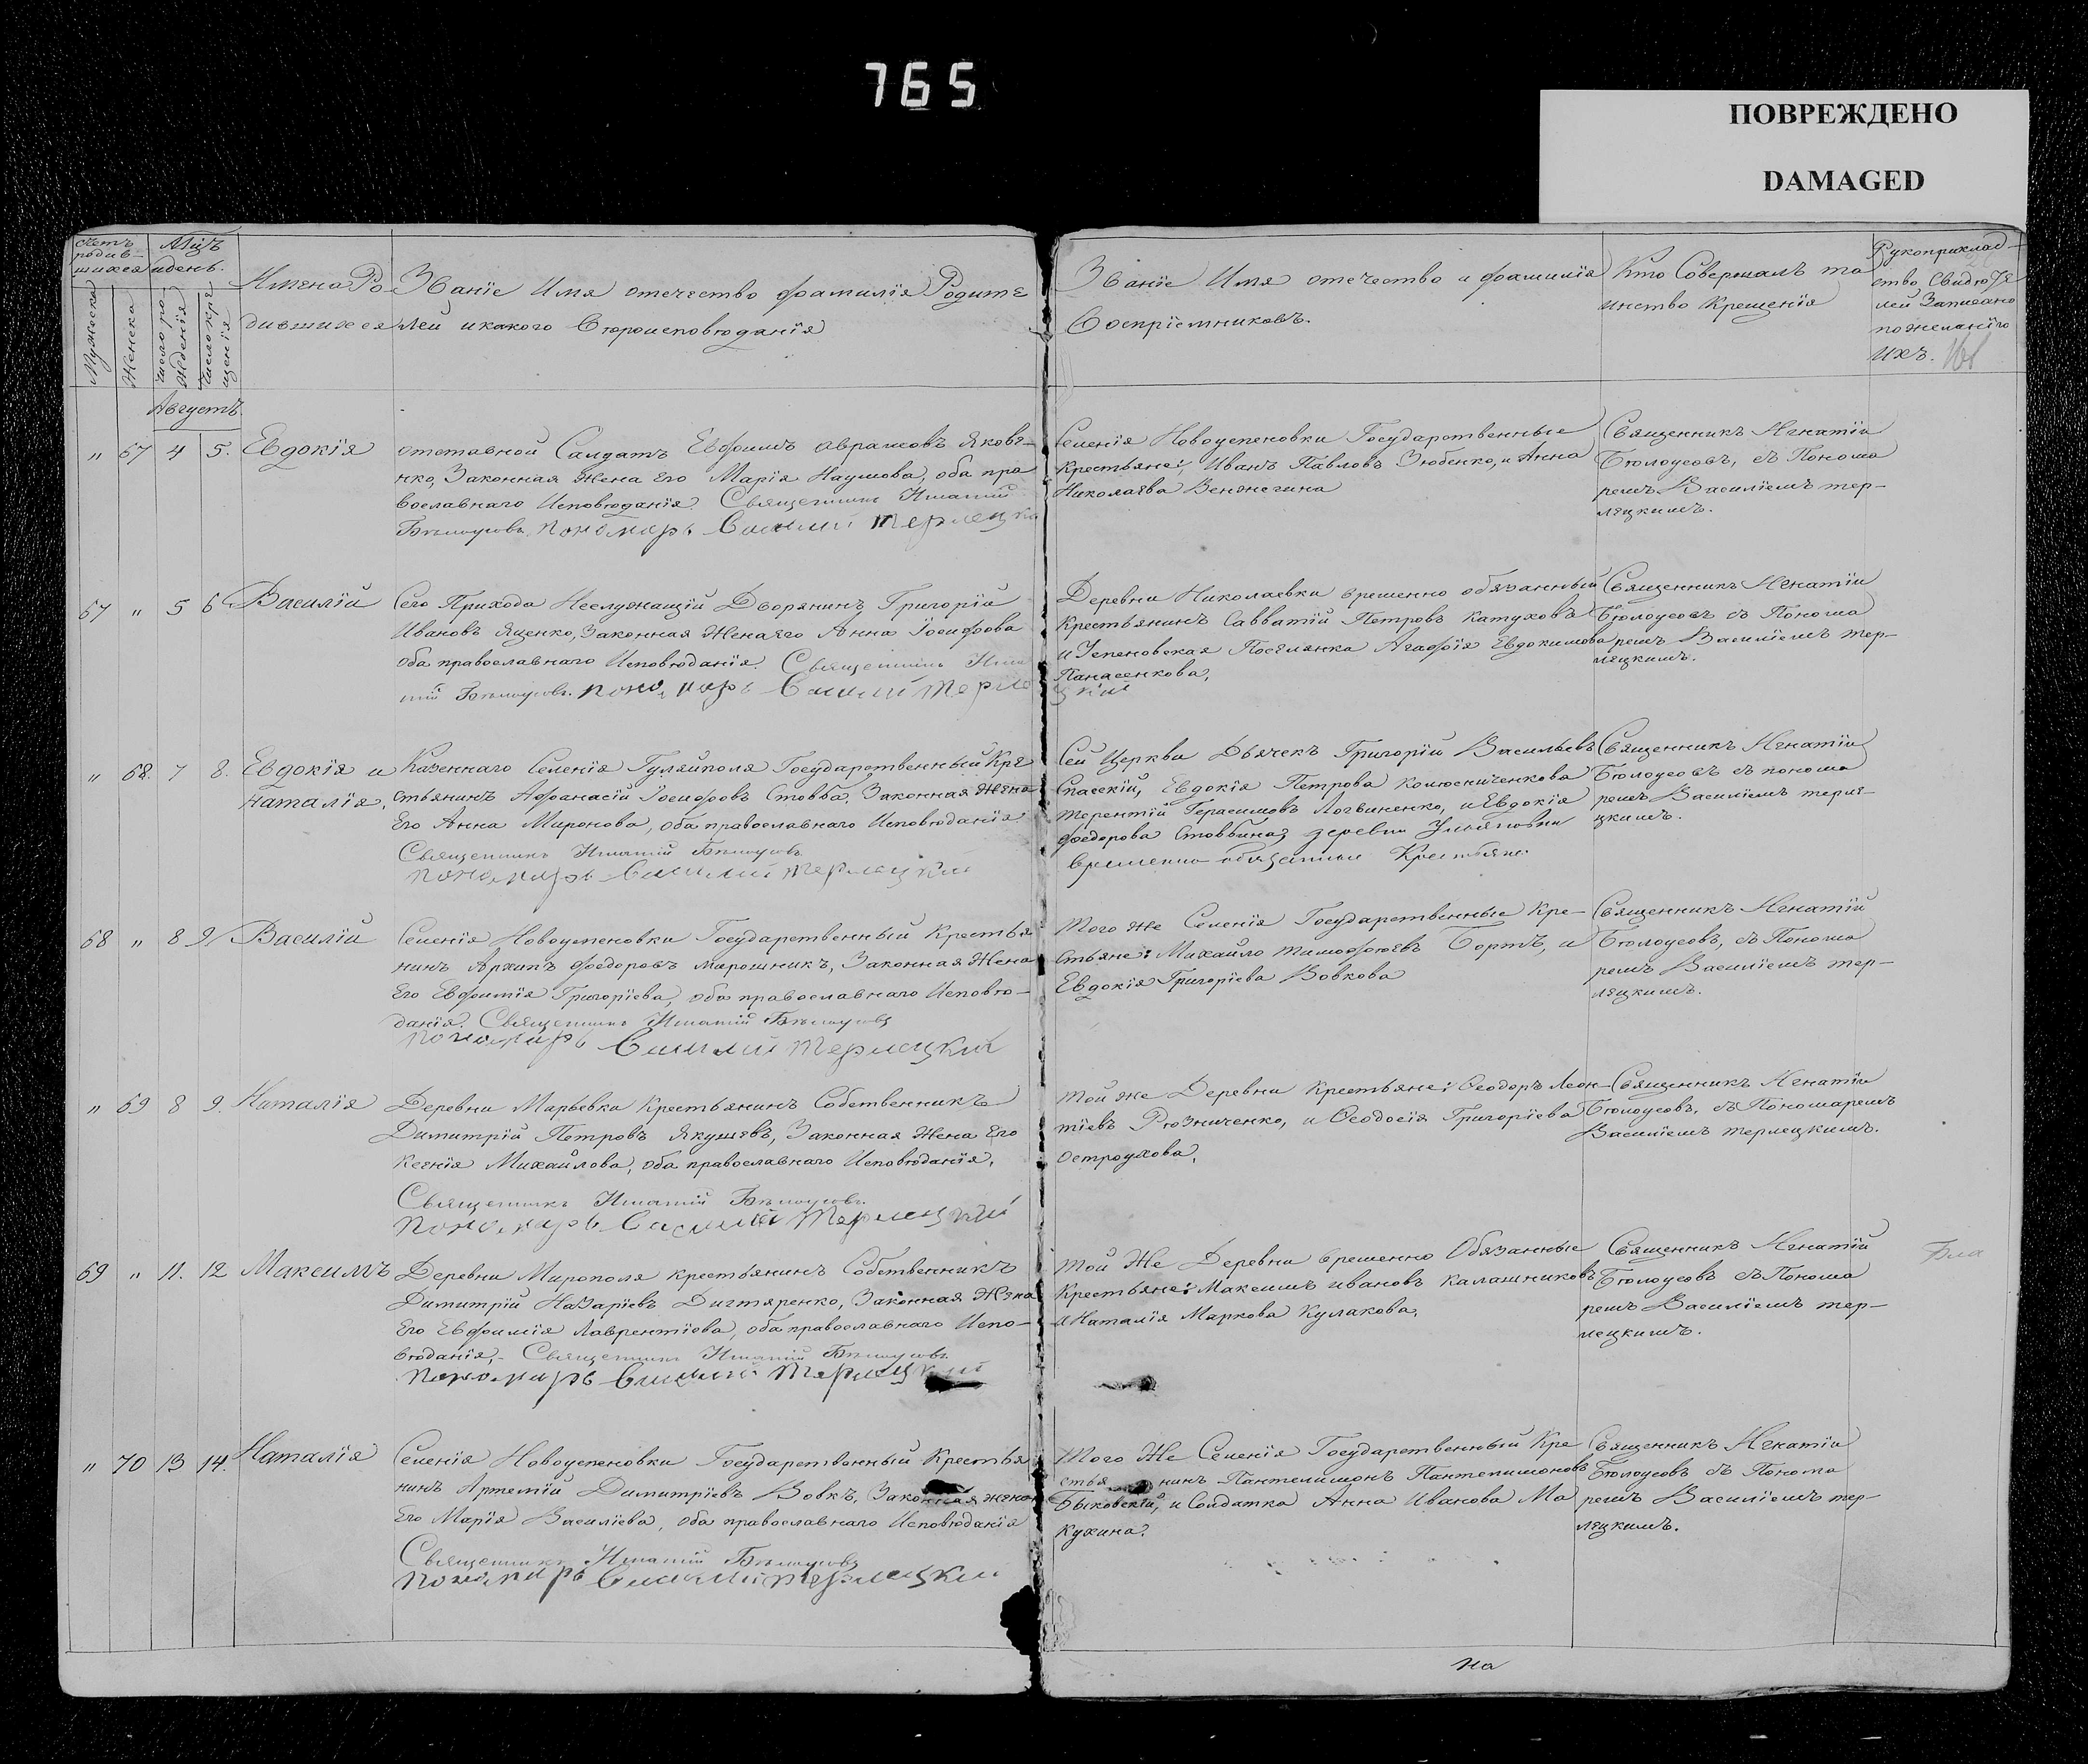 765
ПОВРЕЖДЕНО
DAMAGED
Счетъ родив-шихся
Мужеска
Женска
Мцъ и день.
Число рожденія
Число крещенія
Имена Ро
дившихся
Званіе Имя отечество фамилія Родите
лей и какого Вѣроисповѣданія
Званіе Имя отечество и фамилія
Воспріемниковъ.
Кто Совершалъ та
инство Крещенія
Рукоприклад-
ство Свидѣте
лей Записано
по желанію
ихъ.
Августъ.
„ 67 4 5. Евдокія
отставной Салдатъ Евфимъ Аврамовъ Яковѣ-
нко, Законная Жена Его Марія Наумова, оба пра
вославнаго Исповѣданія Священникъ Игнатій
Бѣлоусовъ Пономарь Василій Терлецкі
Селенія Новоуспеновки Государственные
Крестьяне; Иванъ Павловъ Зюбенко, и Анна
Николаева
Священникъ Игнатій
Бѣлоусовъ, съ Понома
ремъ Василіемъ Тер-
лецкимъ.
67 „ 5 6 Василій
Сего Прихода Неслужащій Дворянинъ Григорій
Ивановъ Яценко, Законная Жена Его Анна Іосифова
оба православнаго Исповѣданія Священникъ Игна
тій Бѣлоусовъ. Пономарь Василій Терлецкій
Деревни Николаевки временно обязанный
Крестьянинъ Савватій Петровъ Катуховъ
и Успеновская Поселянка Агафія Евдокимова
Панасенкова,
Священникъ Игнатій
Бѣлоусовъ съ Понома
ремъ Василіемъ Тер-
лецкимъ.
„ 68. 7 8. Евдокія и
Наталія,
Казеннаго Селенія Гуляйполя Государственный Кре
стьянинъ Афанасій Іосифовъ Стовба, Законная Жена
Его Анна Миронова, оба православнаго Исповѣданія
Священникъ Игнатій Бѣлоусовъ
Пономарь Василій Терлецкій
Сей Церкви Дьячекъ Григорій Васильевъ
Спасскій, Евдокія Петрова Колюсниченкова
Терентій Герасимовъ Логвиненко, и Евдокія
Федорова Стовбина деревни Ульяновки
Временно обязанные Крестьяне
Священникъ Игнатій
Бѣлоусовъ съ Понома
ремъ Василіемъ Терле-
цкимъ.
68 „ 8 9 Василій
Селенія Новоуспеновки Государственный Крестья
нинъ Архипъ Федоровъ Мирошникъ, Законная Жена
Его Евфимія Григорієва, оба православнаго Исповѣ-
данія. Священникъ Игнатій Бѣлоусовъ
Пономарь Василій Терлецкій
Того же Селенія Государственные Кре-
стьяне: Михайло Тимофѣевъ Бортъ, и
Евдокія Григоріева Вовкова
Священникъ Игнатій
Бѣлоусовъ, съ Понома
ремъ Василіемъ Тер-
лецкимъ.
„ 69 8 9. Наталія
Деревни Марьевки Крестьянинъ Собственникъ
Димитрій Петровъ Якушевъ, Законная Жена Его
Ксенія Михайлова, оба православнаго Исповѣданія,
Священникъ Игнатій Бѣлоусовъ.
Пономарь Василій Терлецкій
Той же Деревни Крестьяне; Феодоръ Леон-
тіевъ Рѣзниченко, и Феодосія Григоріева
Остроухова,
Священникъ Игнатій
Бѣлоусовъ, съ Пономаремъ
Василіемъ Терлецкимъ.
69 „ 11. 12 Максимъ
Деревни Мирополя Крестьянинъ Собственникъ
Димитрій Назаріевъ Дигтяренко, Законная Жена
Его Евфимія Лаврентіева, оба православнаго Испо-
вѣданія,- Священникъ Игнатій Бѣлоусовъ
Пономарь Василій Терлецкій
Той Же Деревни временно Обязанные
Крестьяне: Максимъ Ивановъ Калашниковъ
и Наталія Маркова Кулакова.
Священникъ Игнатій
Бѣлоусовъ съ Понома
ремъ Василіемъ Тер-
лецкимъ.
Бла
„ 70 13 14. Наталія
Селенія Новоуспеновки Государственный Крестья
нинъ Артемій Димитріевъ Вовкъ, Законная Жена
Его Марія Василіева, оба православнаго Исповѣданія
Священникъ Игнатій Бѣлоусовъ
Пономарь Василій Терлецкій
Того Же Селенія Государственный Кре
стья нинъ Пантелимонъ Пантелимоновъ
Быковскій, и Солдатка Анна Иванова Ма
кухина.
Священникъ Игнатій
Бѣлоусовъ съ Понома
ремъ Василіемъ Тер-
лецкимъ.
на